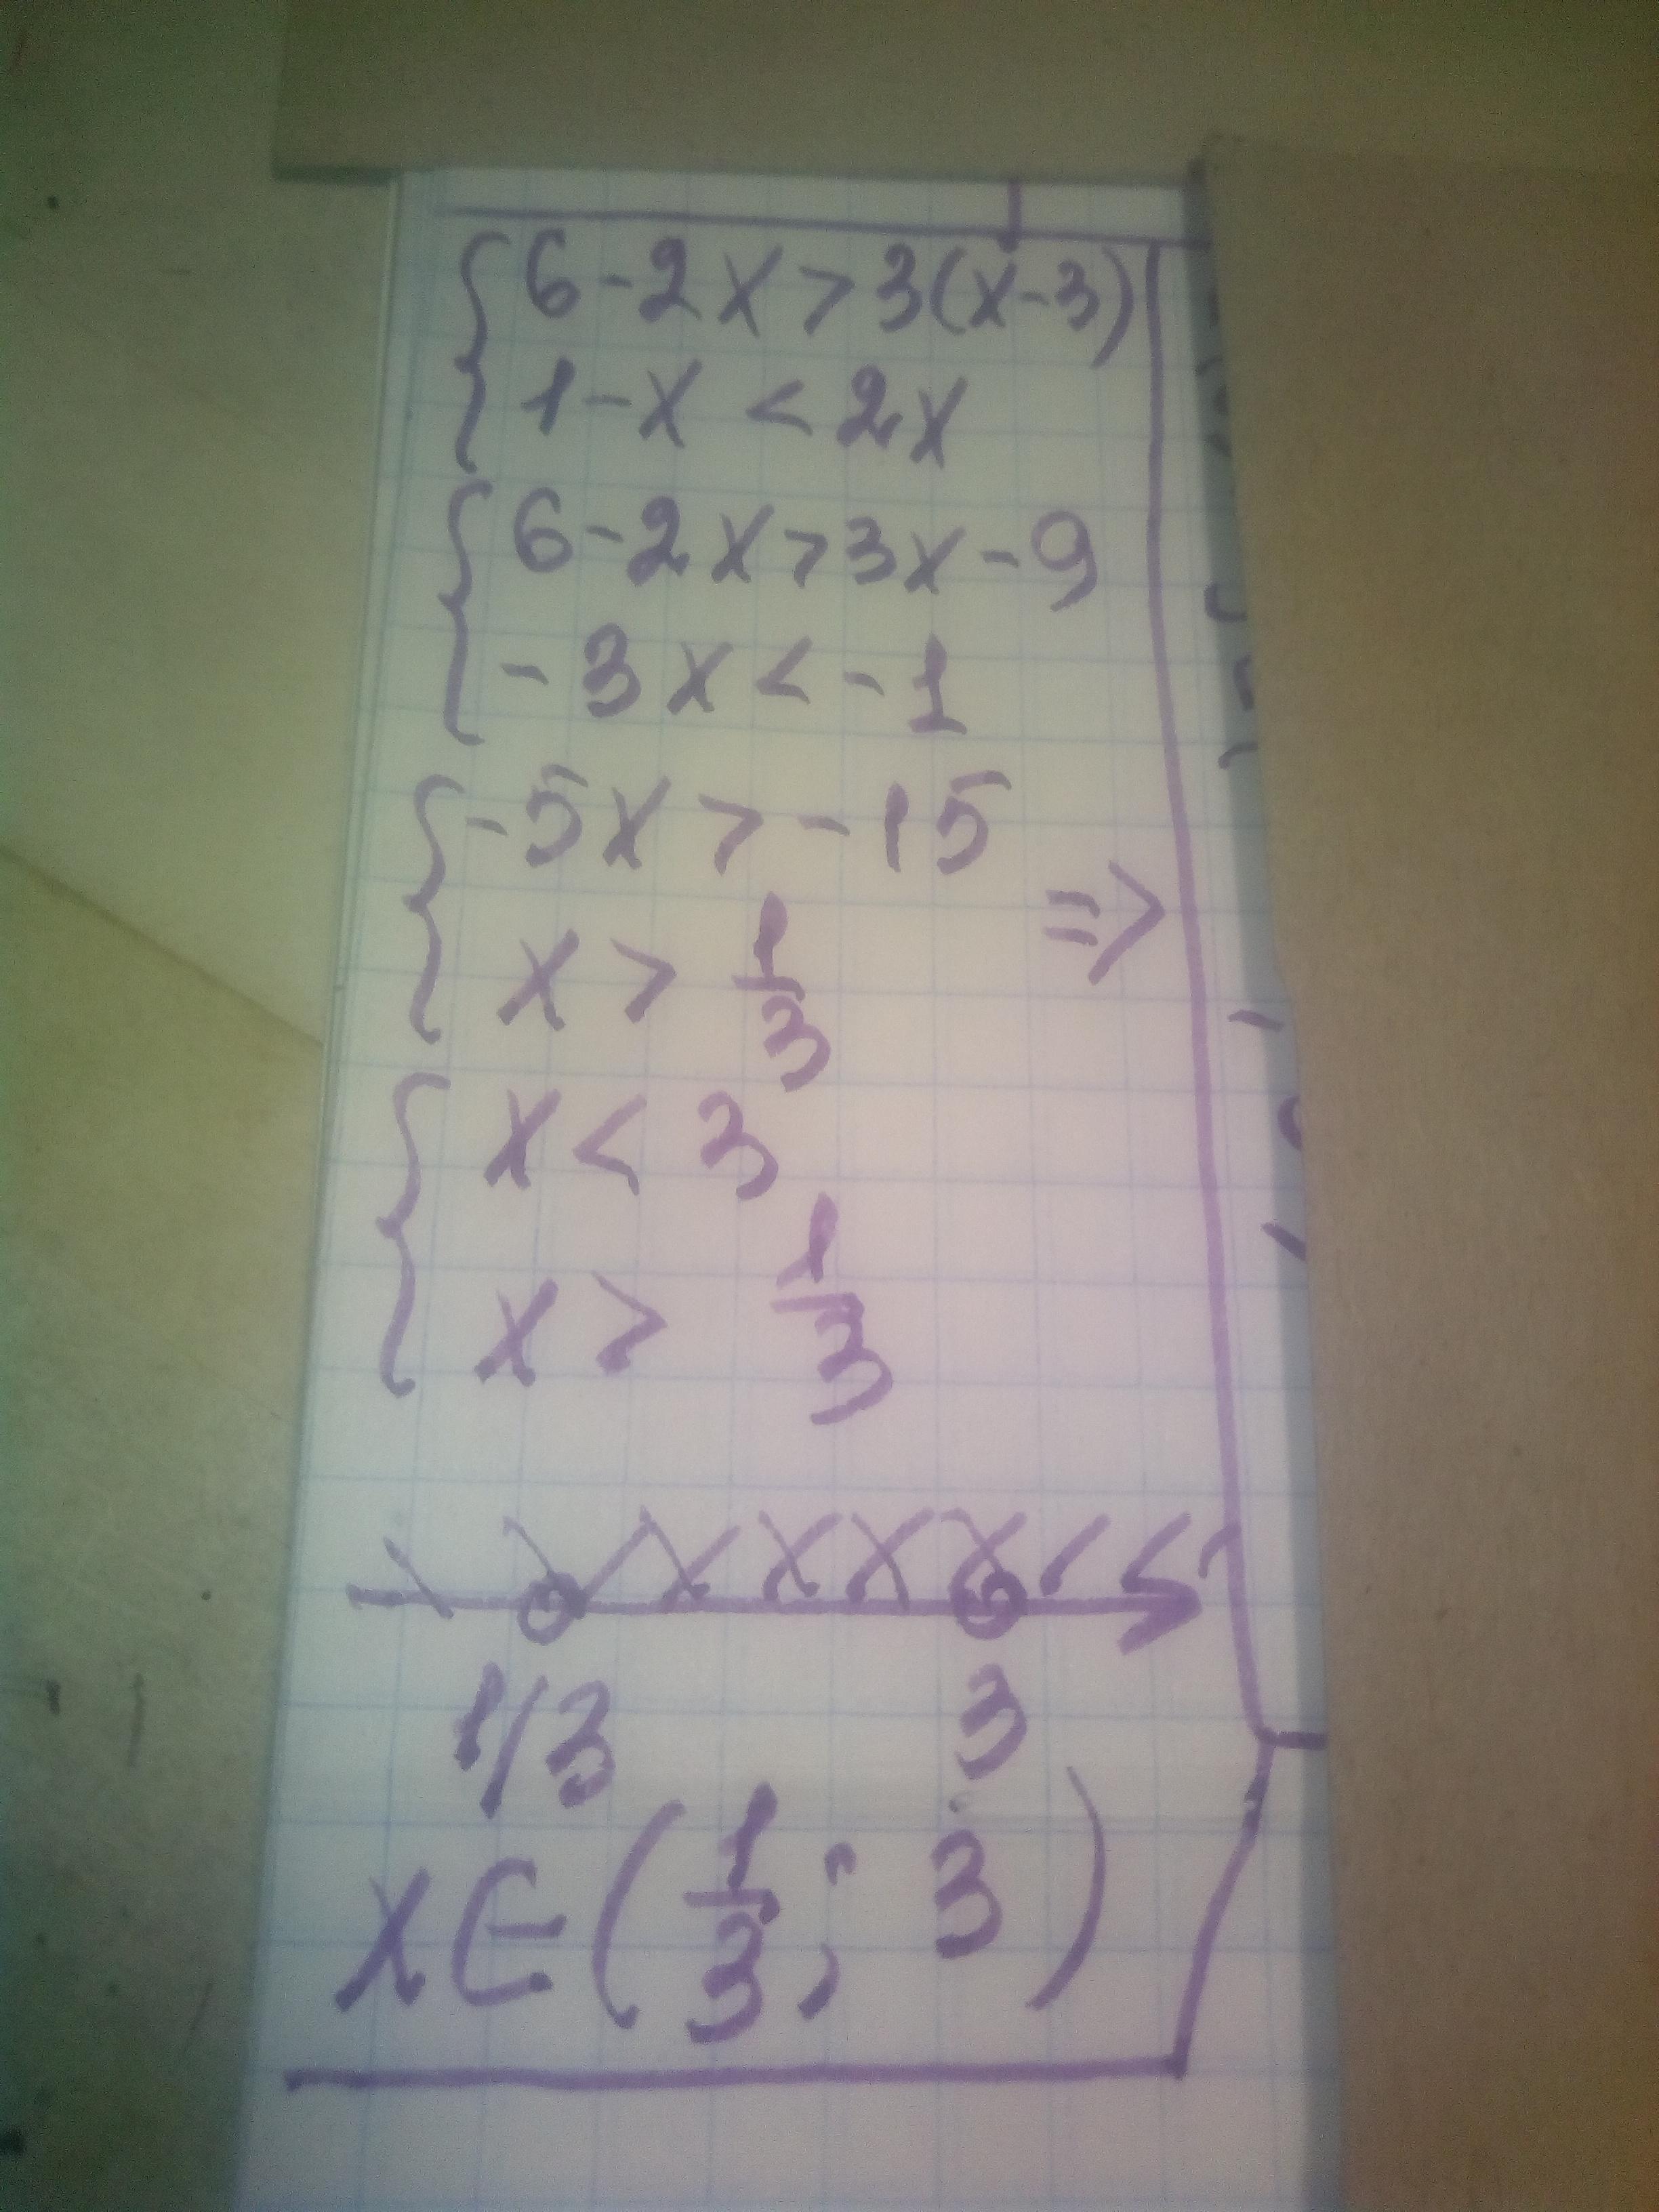 6-2x>3(x-3)
1-x<2x
6-2x>3x-9
-3x<-1
-5x>-15
x>1/3 =>
x<3
x>1/3
1/3 3
x∈(1/3;3)